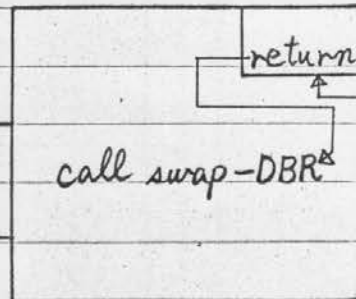 return
call swap-DBR